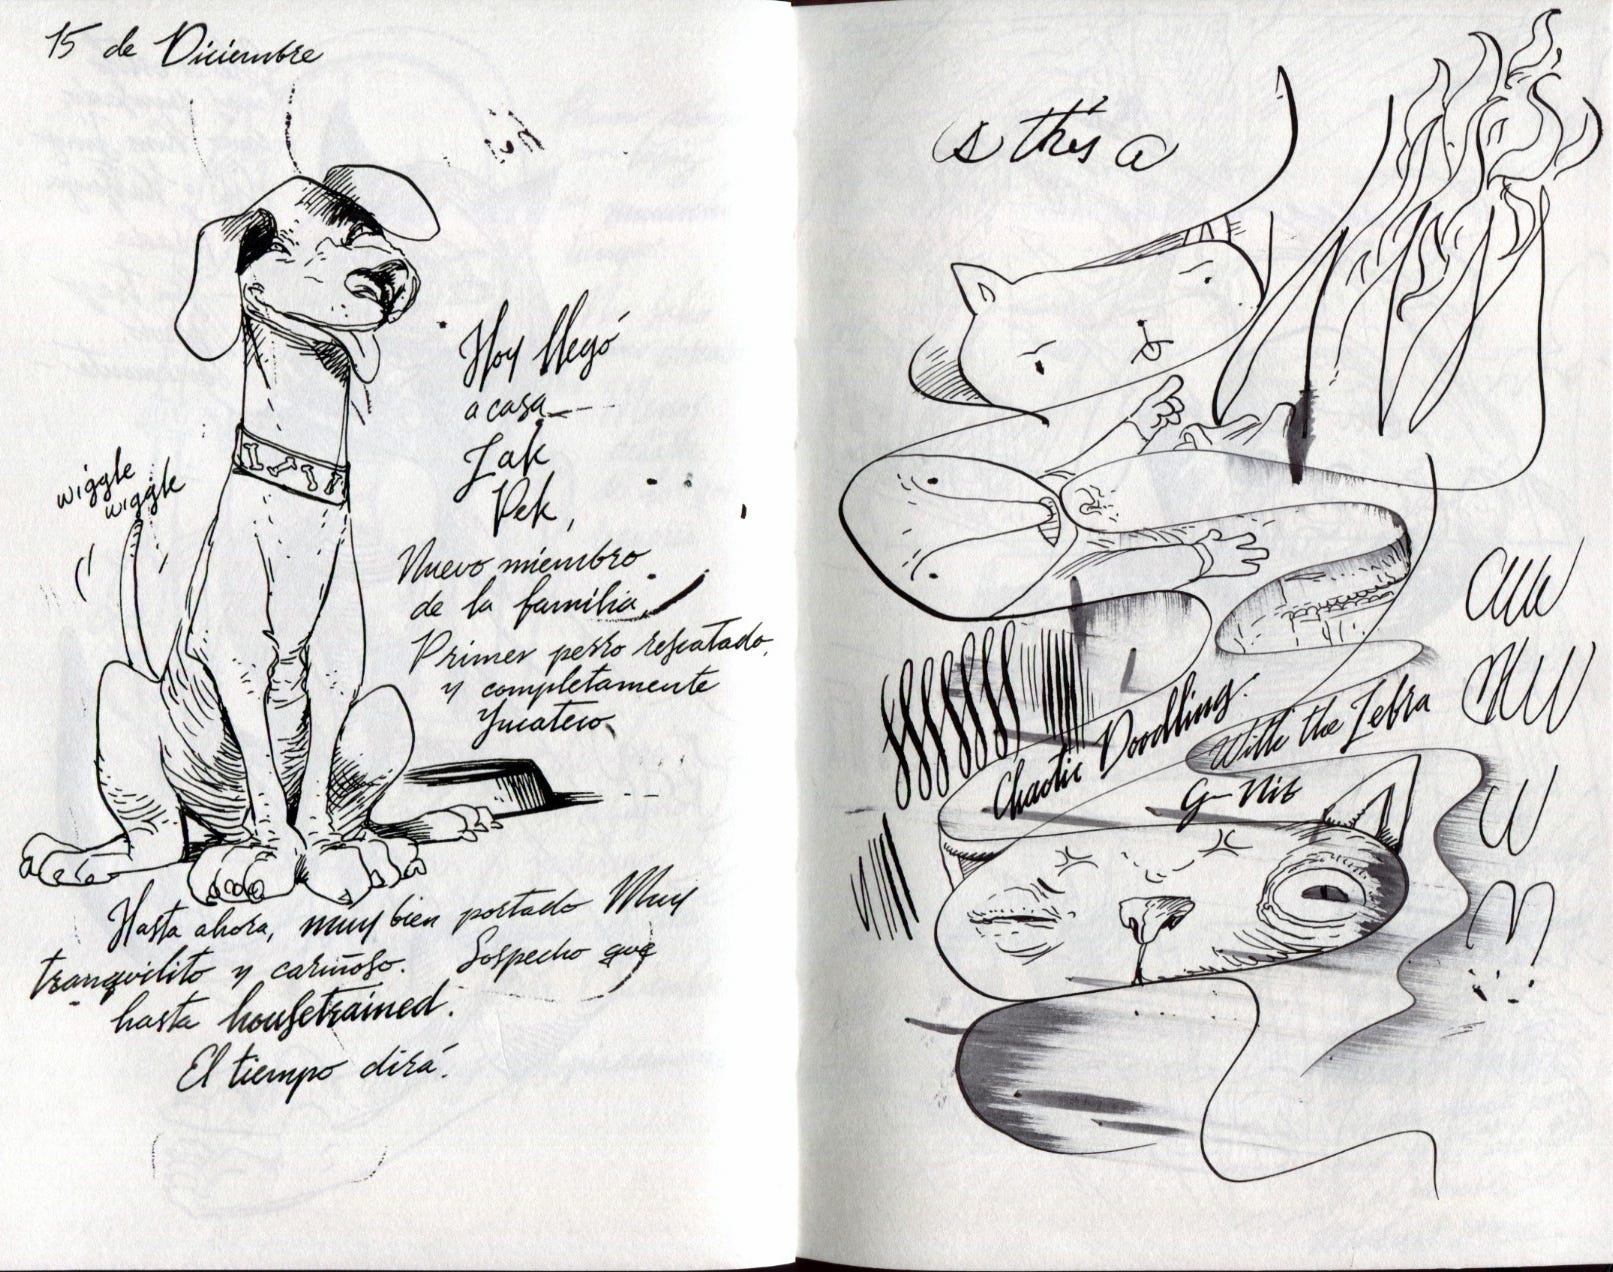 15 de Diciembre
Hoy llegó
a casa
Zak
Pek,
wiggle
wiggle
Nuevo miembro
de la familia.
Primer perro rescatado,
y completamente
Yucateco.
Hasta ahora, muy bien portado Muy
tranquilito y cariñoso. Sospecho que
hasta housetrained.
El tiempo dirá.
is this a
Chaotic Doodling
With the Zebra
G-Nib